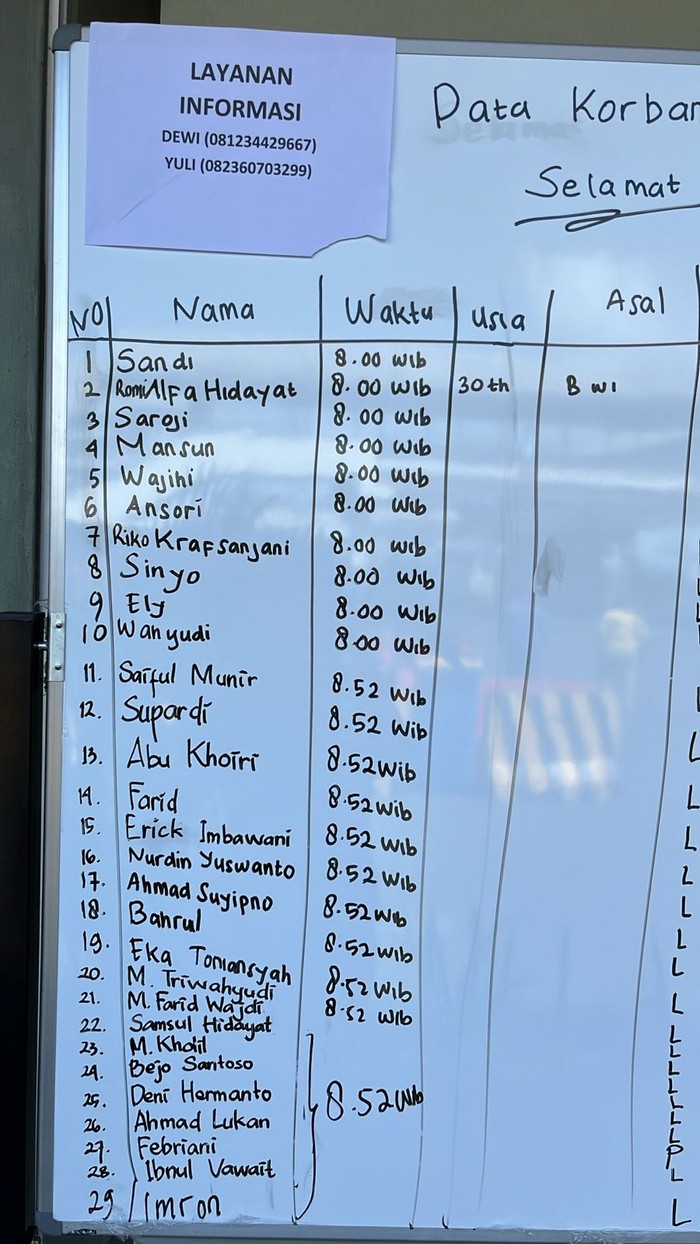 LAYANAN
INFORMASI
DEWI (081234429667)
YULI (082360703299)
Data Korban
Selamat
NO Nama Waktu Usia Asal
1 Sandi 8.00 Wib
2 Romi Alfa Hidayat 8.00 Wib 30th Bwi
3 Saroji 8.00 Wib
4 Mansun 8.00 Wib
5 Wajihi 8.00 Wib
6 Ansori 8.00 Wib
7 Riko Krafsanjani 8.00 Wib
8 Sinyo 8.00 Wib
9 Ely 8.00 Wib
10 Wahyudi 8.00 Wib
11. Saiful Munir 8.52 Wib
12. Supardi 8.52 Wib
13. Abu Khoiri 8.52 Wib L
14. Farid 8.52 Wib L
15. Erick Imbawani 8.52 Wib L
16. Nurdin Yuswanto 8.52 Wib L
17. Ahmad Suyipno 8.52 Wib L
18. Bahrul 8.52 Wib L
19. Eka Toniansyah 8.52 Wib L
20. M. Triwahyudi 8.52 Wib L
21. M. Farid Wajdi L
22. Samsul Hidayat L
23. M. Kholil L
24. Bejo Santoso L
25. Deni Hermanto 8.52 Wib L
26. Ahmad Lukan L
27. Febriani P
28. Ibnul Vawait L
29 Imron L